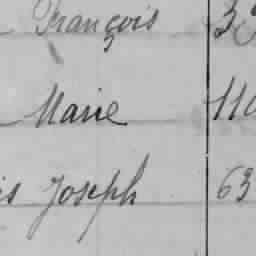 François
Marie 110
is Joseph 63